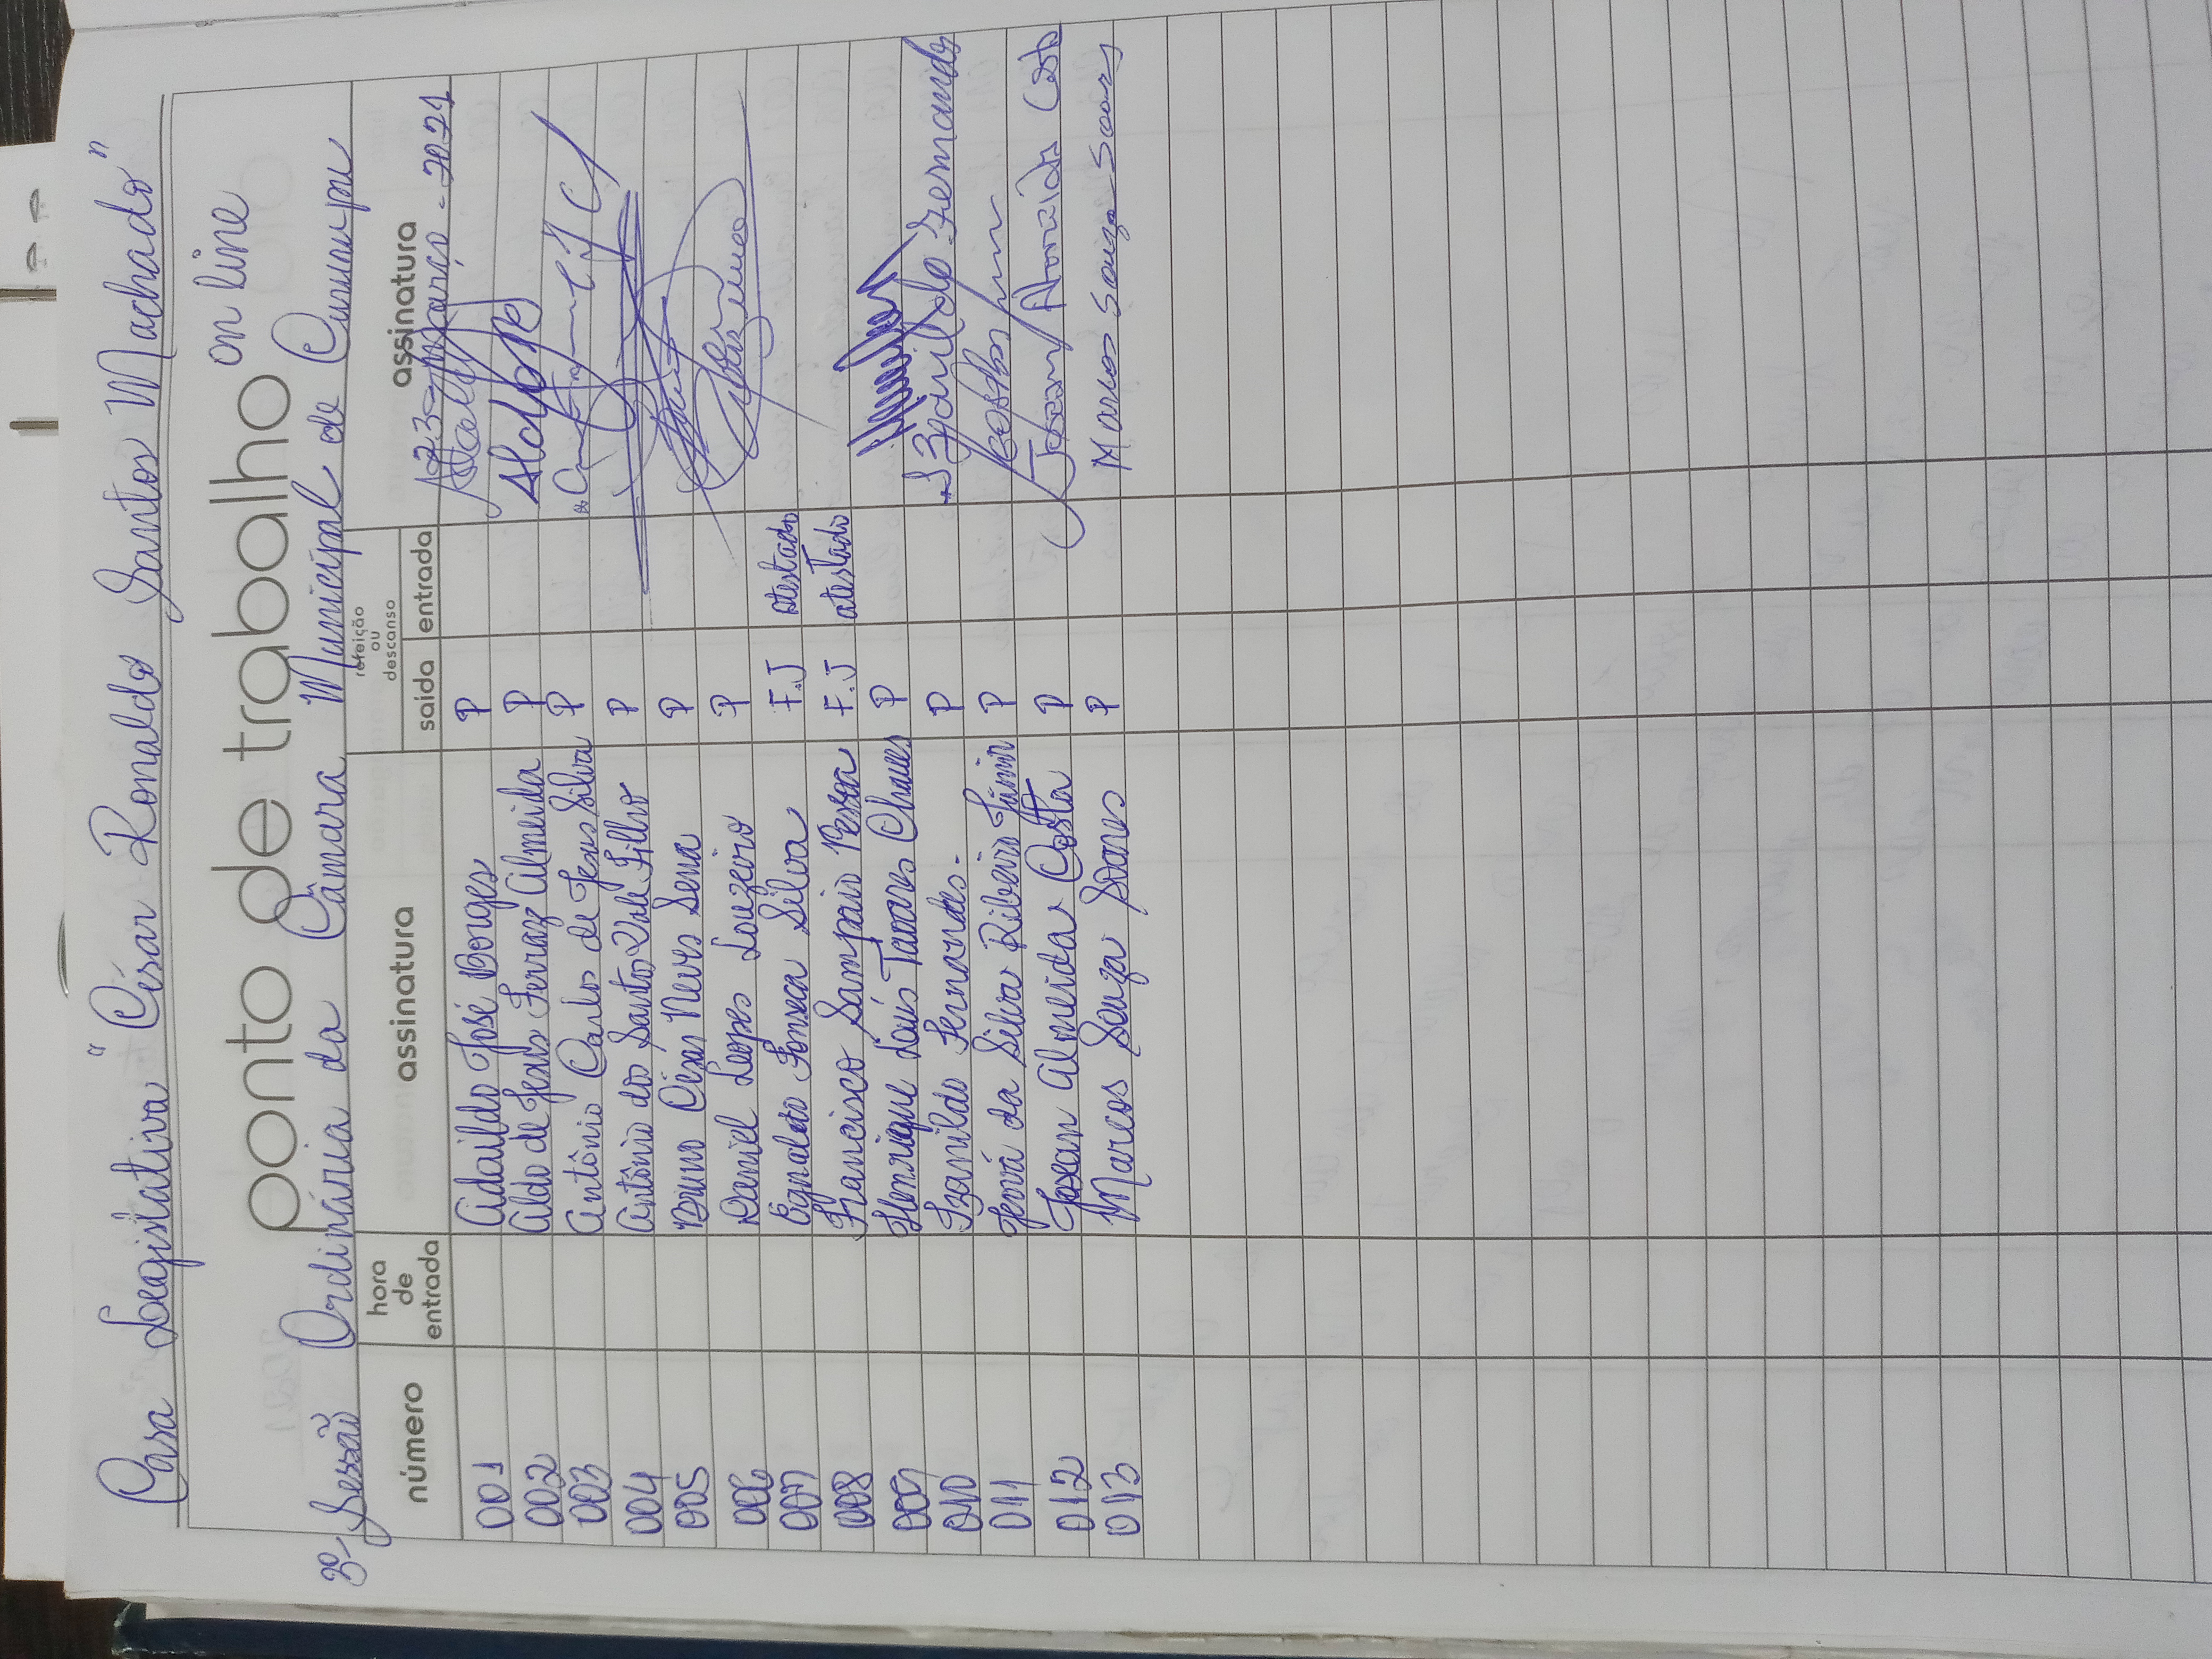 Casa Legislativa "César Ronaldo Santos Machado"
ponto de trabalho on line
3ª Sessão Ordinária da Câmara Municipal de Cururupu
número hora de entrada assinatura refeição ou descanso saída entrada assinatura
23 - Março - 2021
001 Adaildo José Borges P
002 Aldo de Jesus Ferraz Almeida P Aldo
003 Antônio Carlos de Jesus Silva P
004 Antônio dos Santos Vale Filho P
005 Bruno César Neves Sena P
006 Daniel Lopes Louzeiro P
007 Egnaldo Fonseca Silva F.J atestado
008 Francisco Sampaio F.J atestado
009 Henrique Louis Tavares Chaves P
010 Izanildo Fernandes - P Izanildo Fernandes
011 Jeová da Silva Ribeiro Júnior P
012 Josean Almeida Costa P Josean Almeida Costa
013 Marcos Souza Soares P Marcos Souza Soares